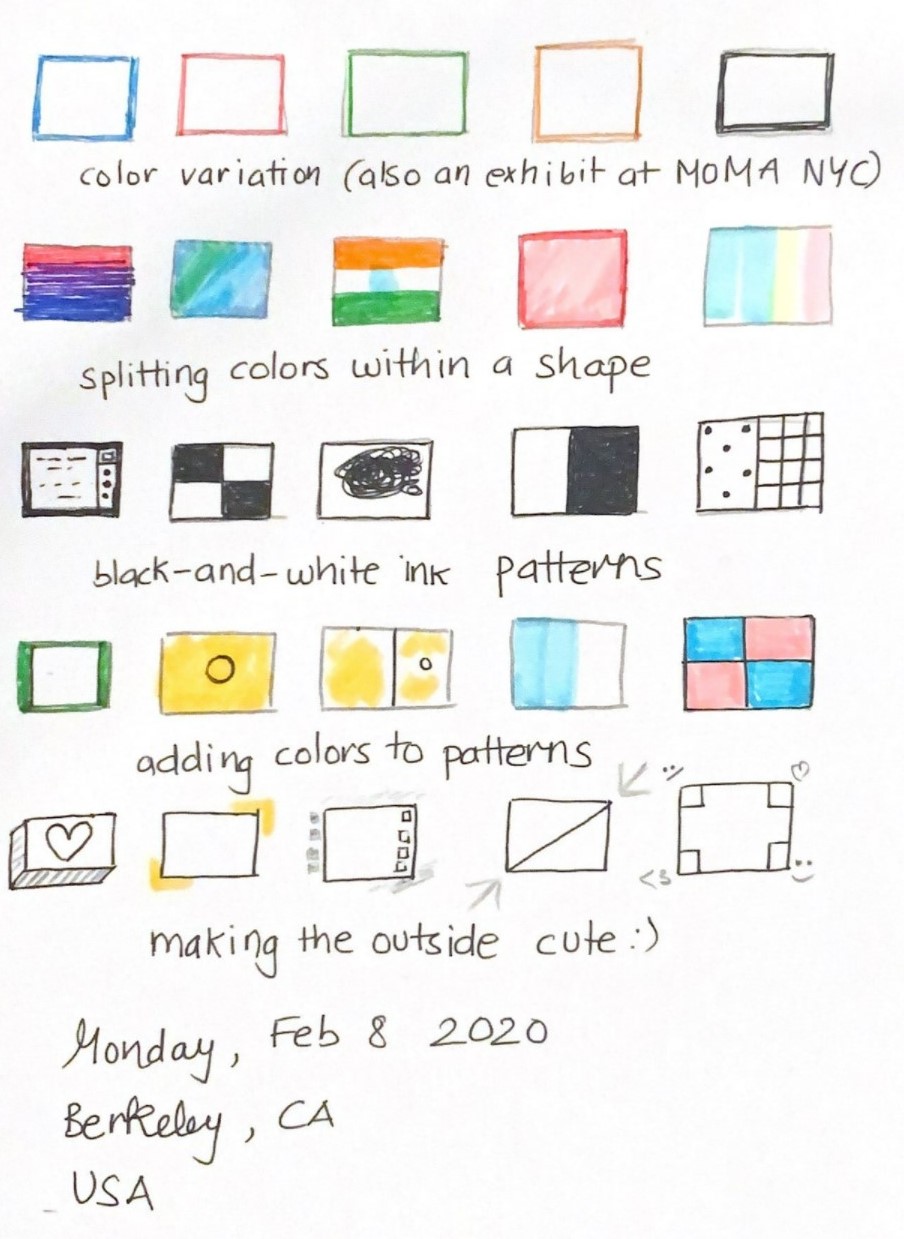 color variation (also an exhibit at MOMA NYC)
splitting colors within a shape
black-and-white ink patterns
adding colors to patterns
<3
making the outside cute :)
Monday, Feb 8 2020
Berkeley, CA
USA